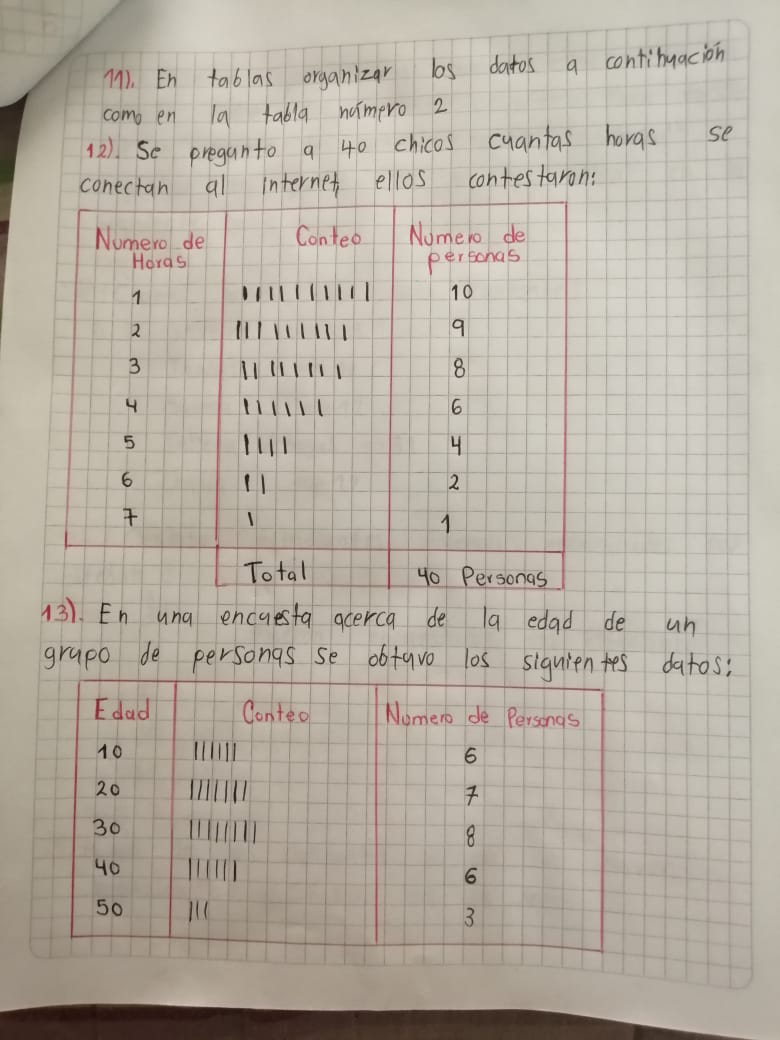 11). En tablas organizar los datos a continuación
como en la tabla número 2
12). Se pregunto a 40 chicos cuantas horas se
conectan al internet, ellos contestaron:
Numero de Horas Conteo Numero de personas
1 |||||||||| 10
2 ||||||||| 9
3 |||||||| 8
4 |||||| 6
5 |||| 4
6 || 2
7 | 1
Total 40 Personas
13). En una encuesta acerca de la edad de un
grupo de personas se obtuvo los siguientes datos:
Edad Conteo Numero de Personas
10 |||||| 6
20 ||||||| 7
30 |||||||| 8
40 |||||| 6
50 ||| 3